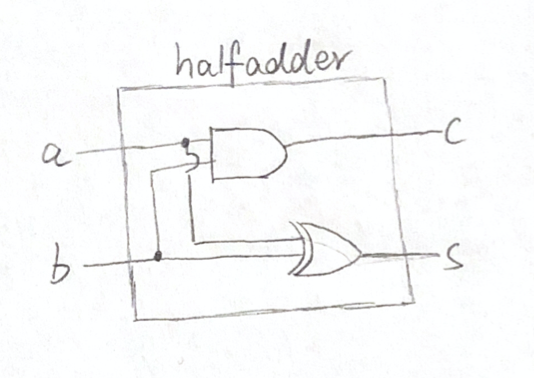 halfadder
a
C
b
S